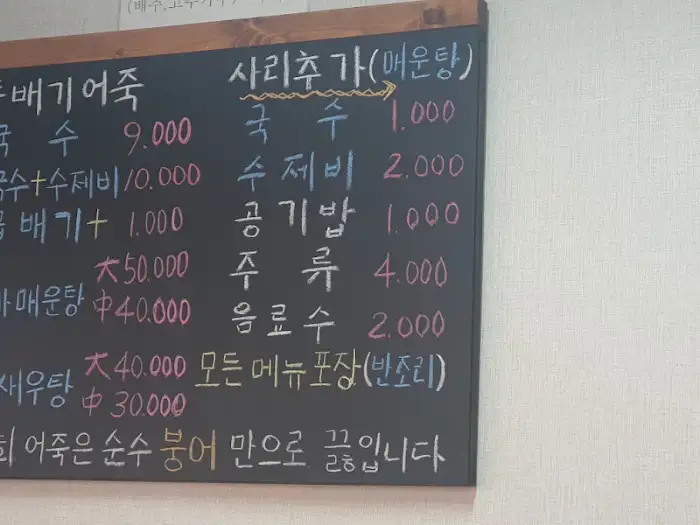 (배추, 고
배기어죽
국 수 9.000
국수+수제비 10.000
배기+ 1.000
매운탕 大 50.000
中 40.000
새우탕 大 40.000
中 30.000
사리추가(매운탕)
국 수 1.000
수제비 2.000
공기밥 1.000
주 류 4.000
음료수 2.000
모든메뉴포장(반조리)
어죽은 순수 붕어 만으로 끓입니다